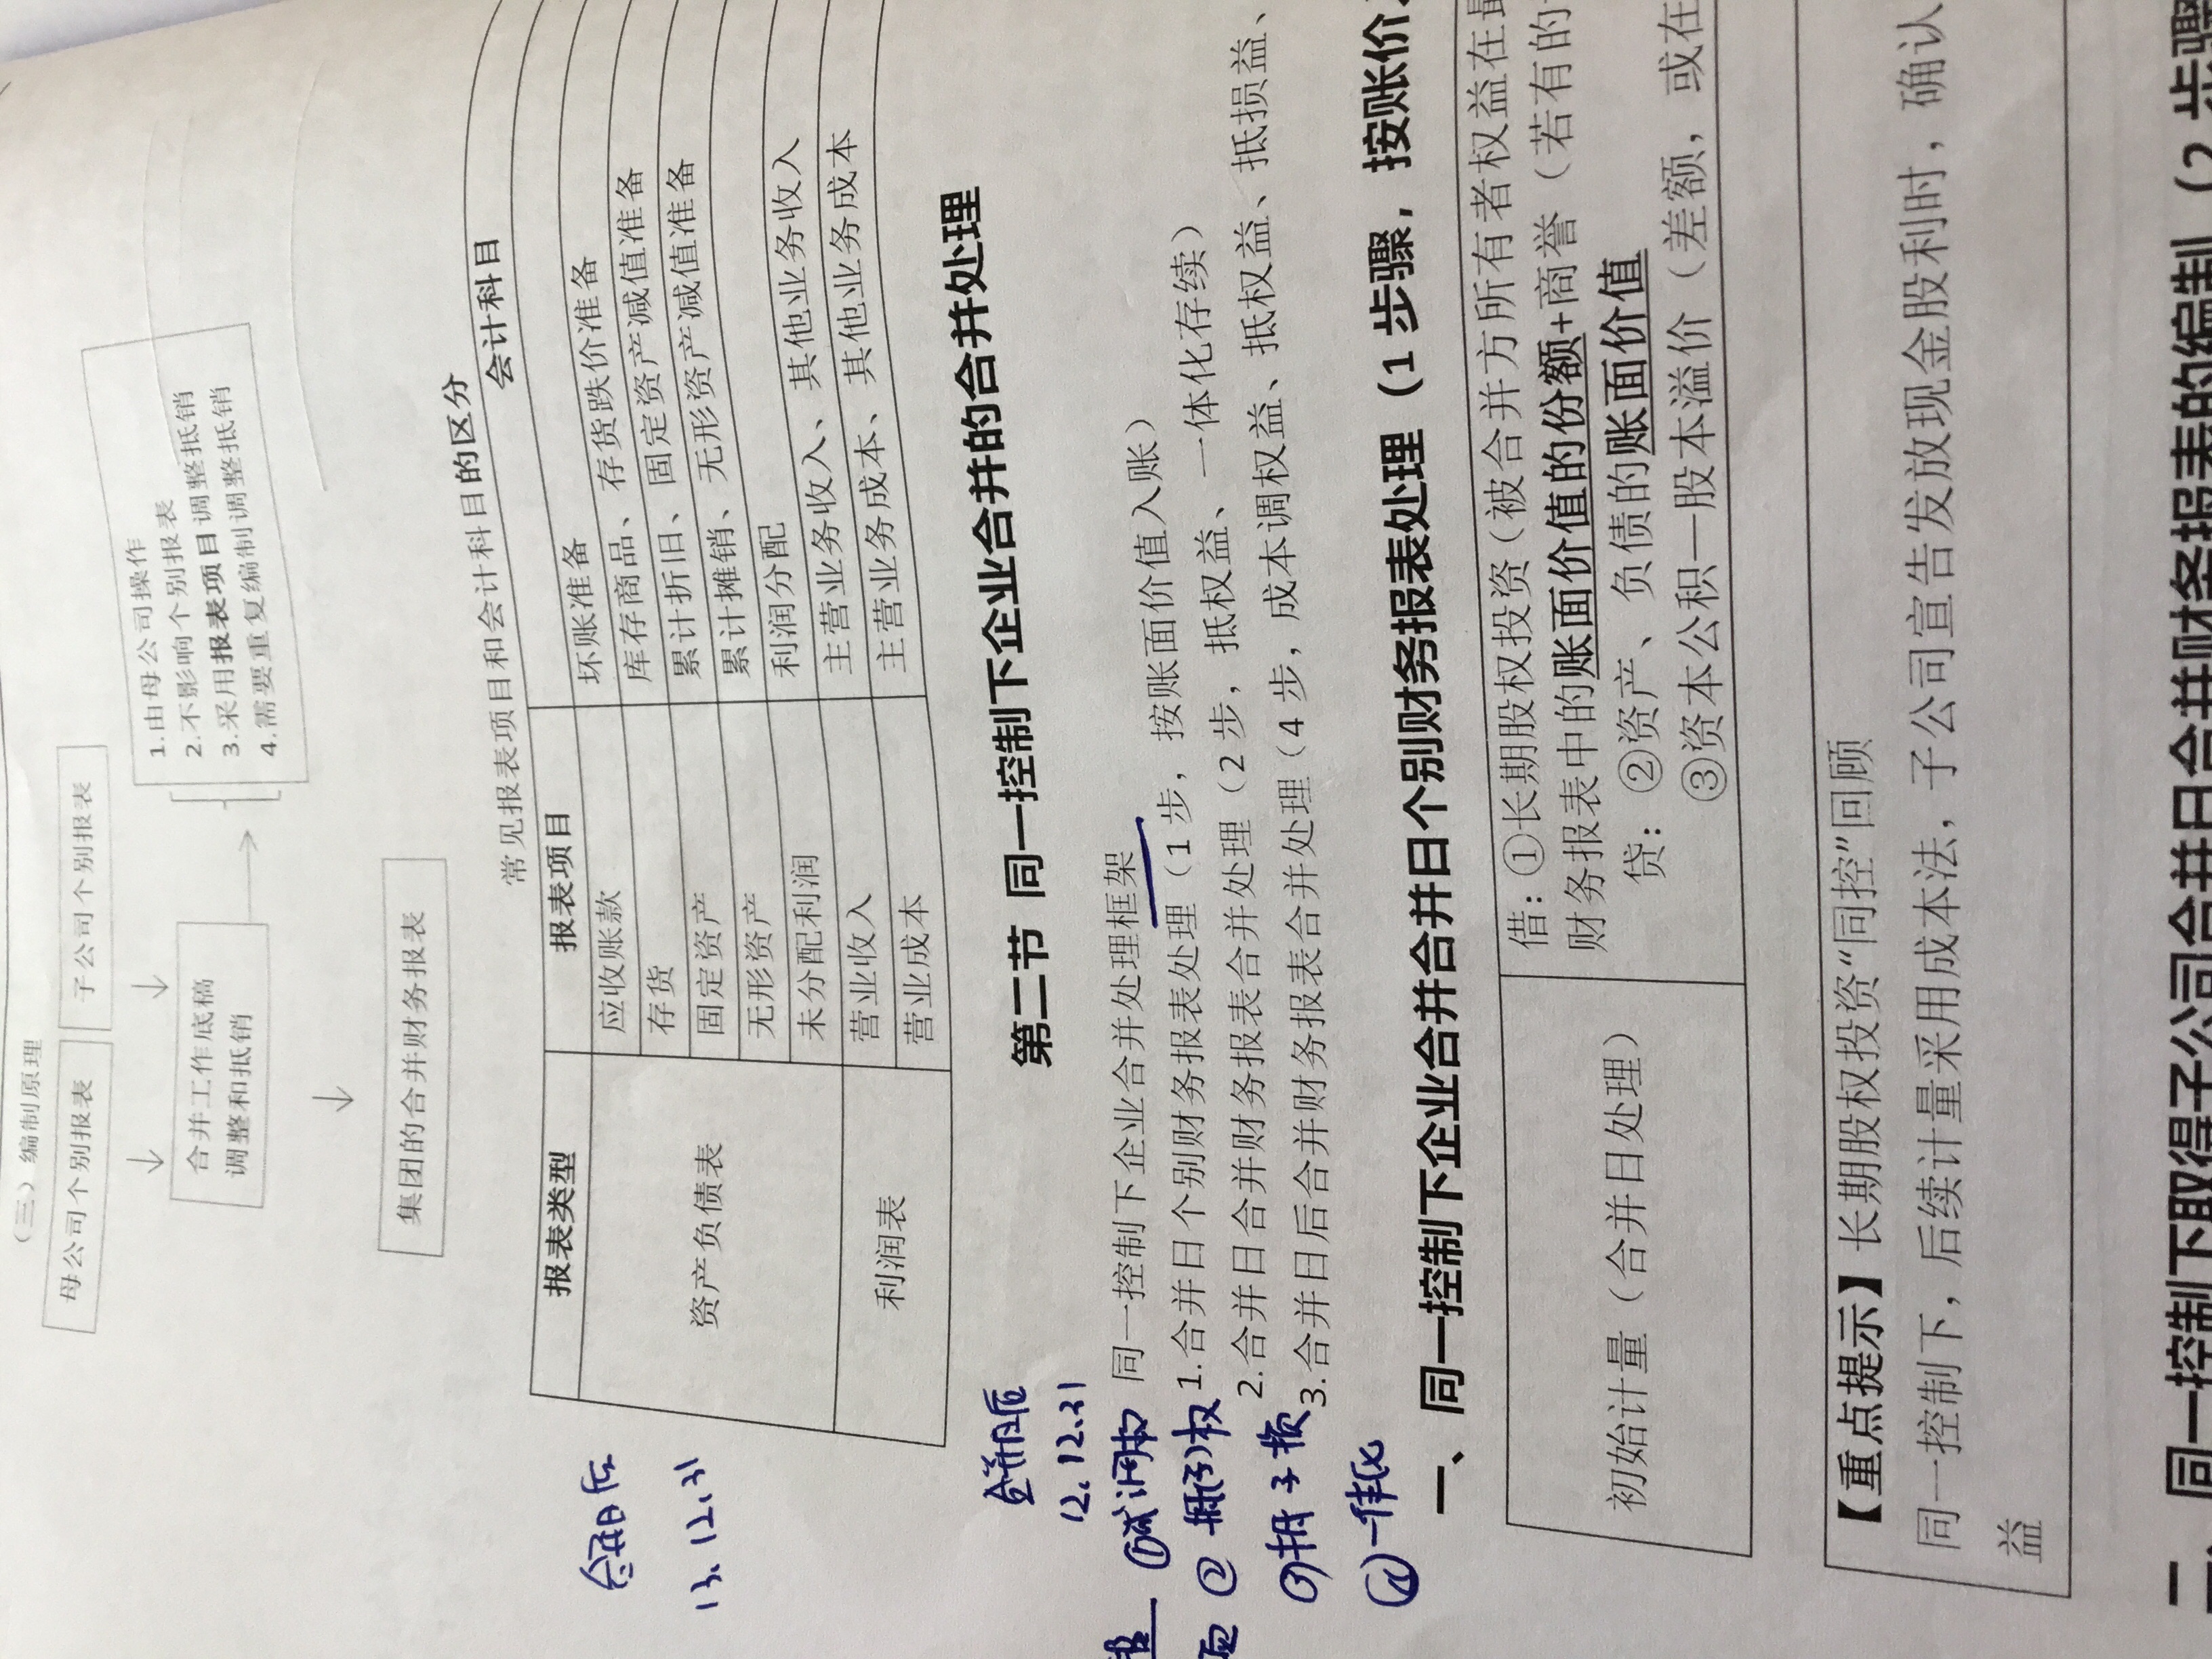 （三）编制原理
母公司个别报表
子公司个别报表
合并工作底稿
调整和抵销
1.由母公司操作
2.不影响个别报表
3.采用报表项目调整抵销
4.需要重复编制调整抵销
集团的合并财务报表
常见报表项目和会计科目的区分
报表类型 报表项目 会计科目
资产负债表
应收账款 坏账准备
存货 库存商品、存货跌价准备
固定资产 累计折旧、固定资产减值准备
无形资产 累计摊销、无形资产减值准备
未分配利润 利润分配
利润表
营业收入 主营业务收入、其他业务收入
营业成本 主营业务成本、其他业务成本
合并日后
13.12.31
第二节 同一控制下企业合并的合并处理
合并日后
12.12.31
同一控制下企业合并处理框架
1.合并日个别财务报表处理（1 步，按账面价值入账）
2.合并日合并财务报表合并处理（2 步，抵权益、一体化存续）
3.合并日后合并财务报表合并处理（4 步，成本调权益、抵权益、抵损益、
②抵子权
③抵子损
④一体化
一、同一控制下企业合并合并日个别财务报表处理（1 步骤，按账价
初始计量（合并日处理）
借：①长期股权投资（被合并方所有者权益在最
财务报表中的账面价值的份额+商誉（若有的
贷：②资产、负债的账面价值
③资本公积—股本溢价（差额，或在
【重点提示】长期股权投资“同控”回顾
同一控制下，后续计量采用成本法，子公司宣告发放现金股利时，确认
益
二、同一控制下取得子公司合并日合并财务报表的编制（2 步骤